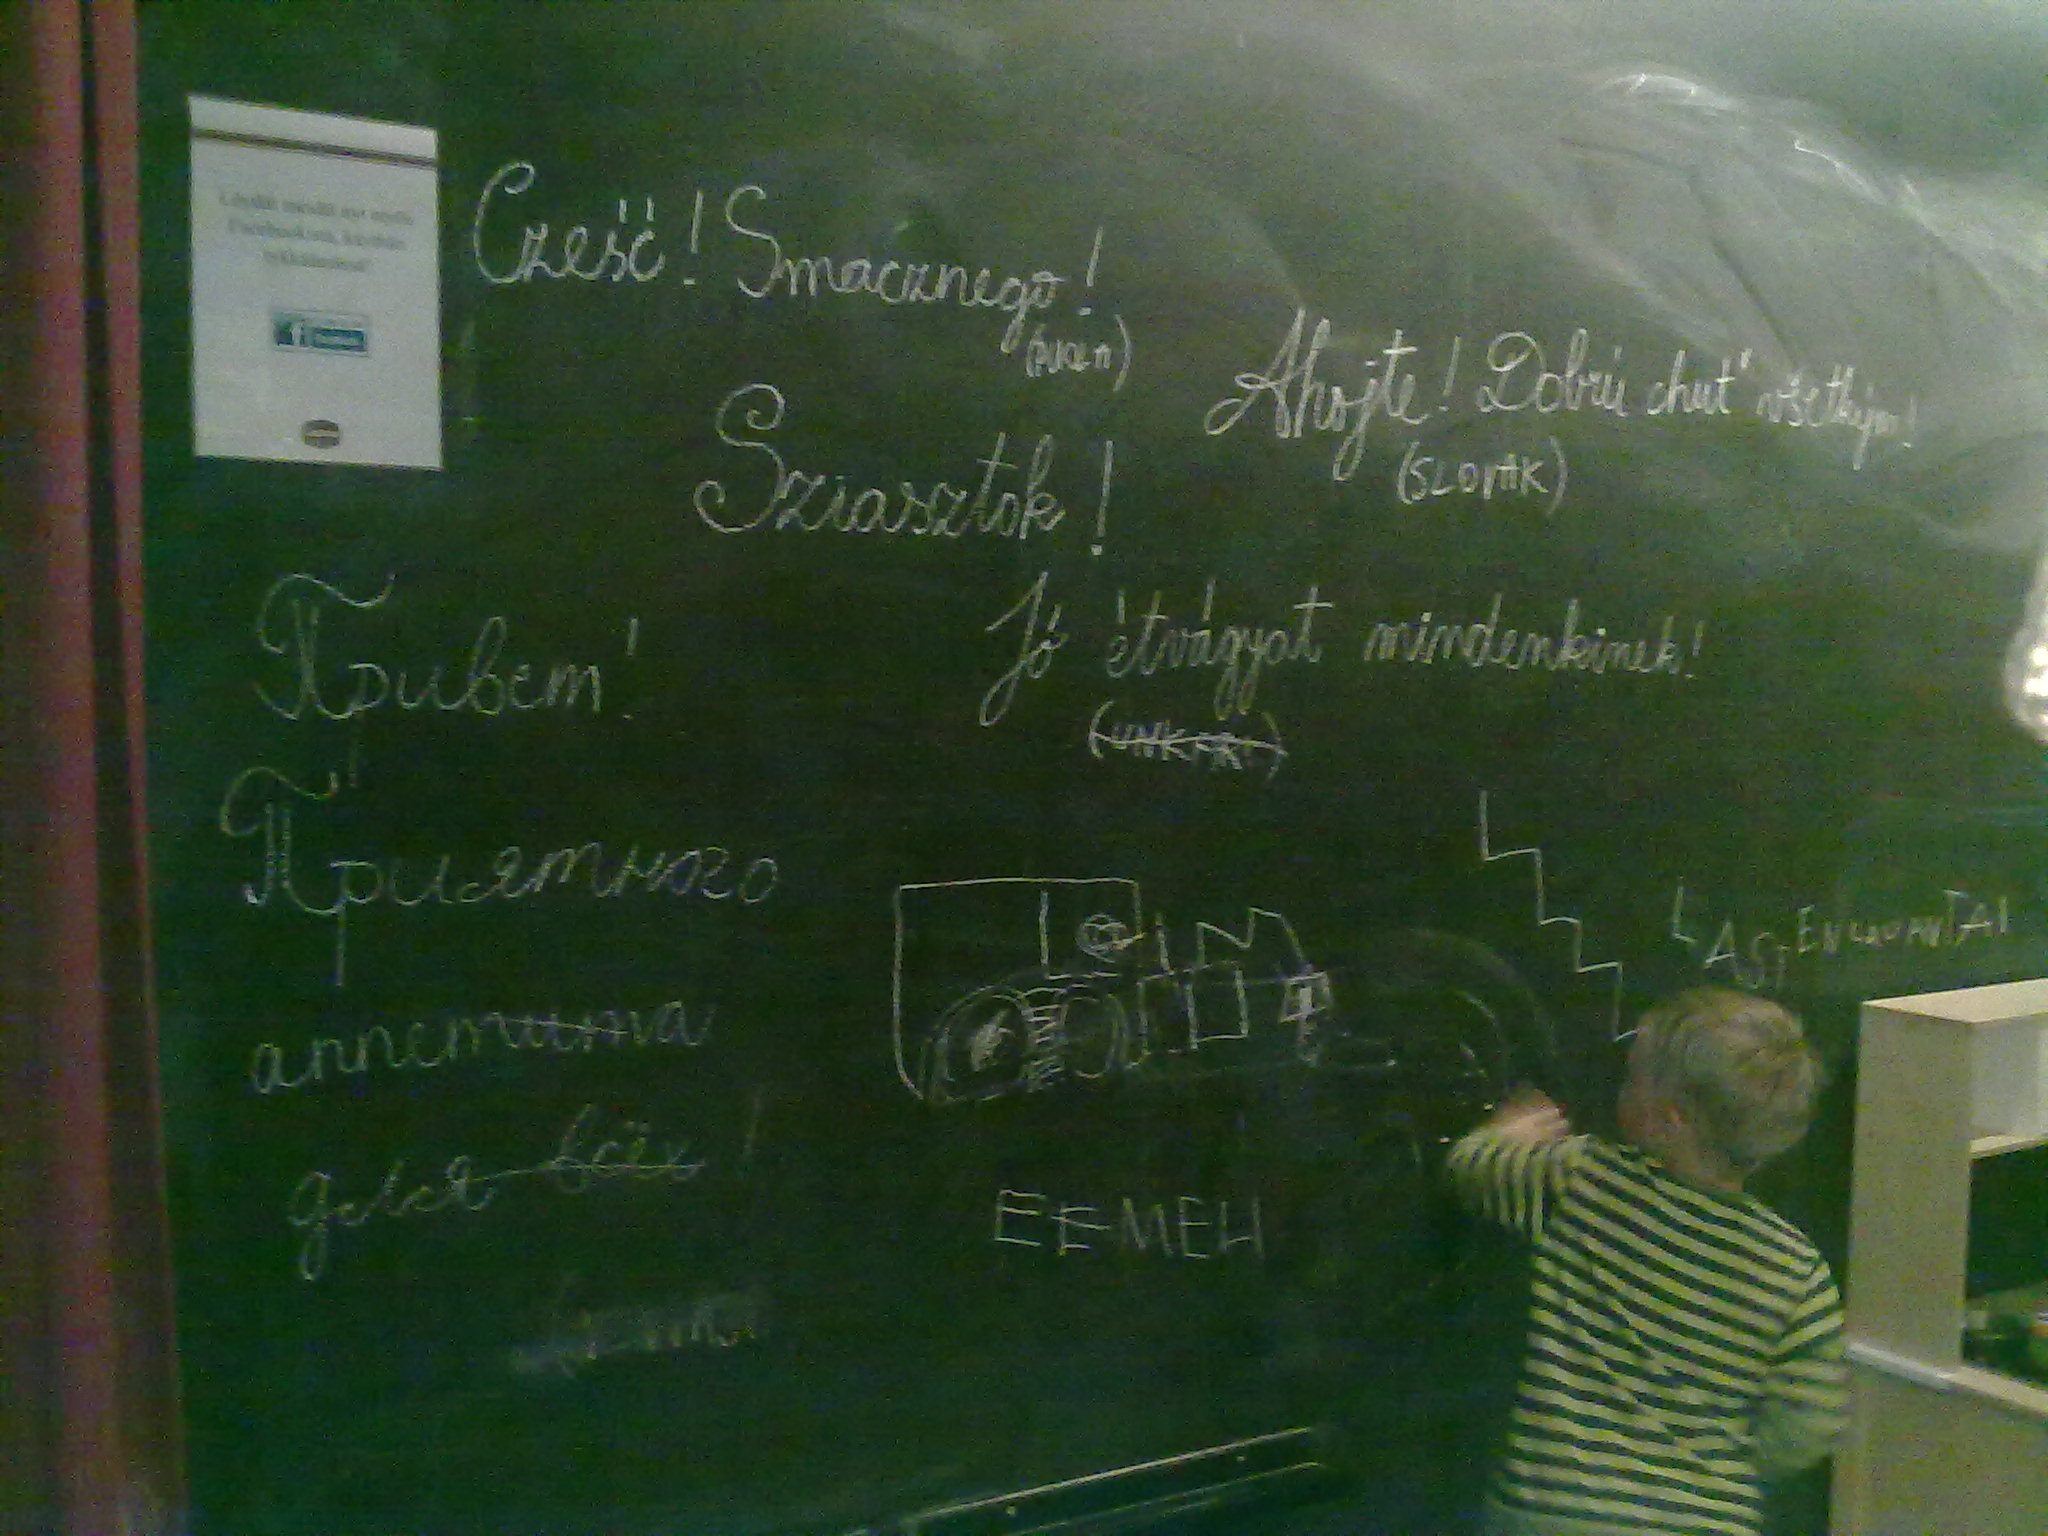 Cześć! Smacznego!
Ahojte! Dobrú chuť všetkým!
(SLOVAK)
Sziasztok!
Jó étvágyat mindenkinek!
Привет!
Приятного
аппетита
для всех!
LASTENLAUANTAI
EEMELI